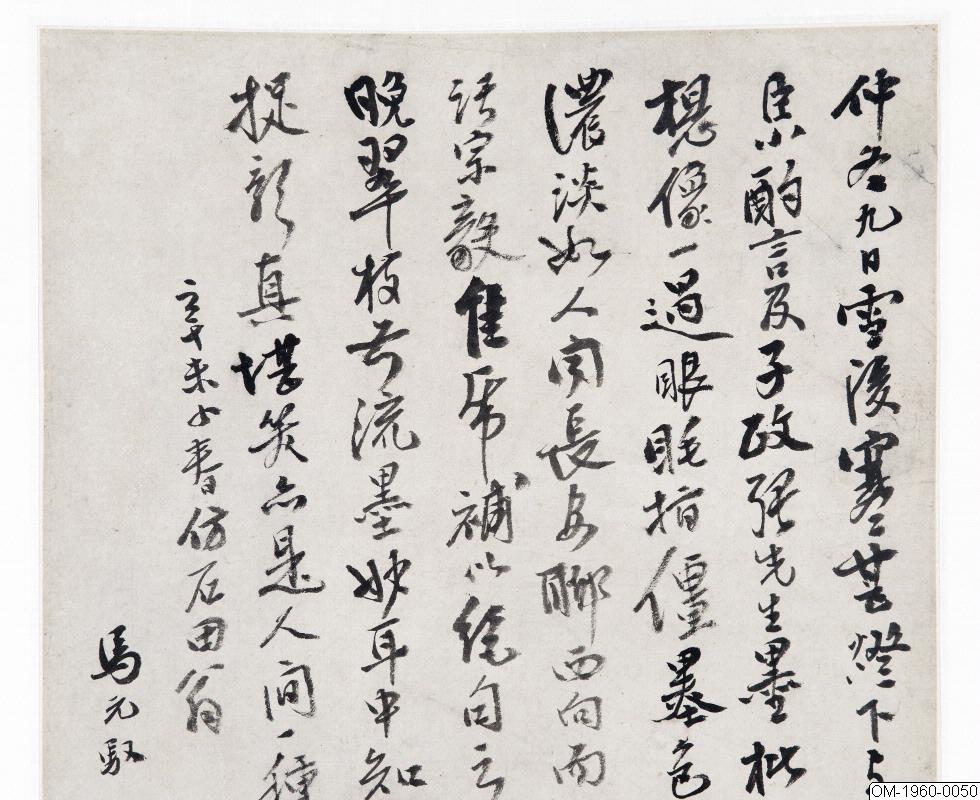 仲冬九日雪後寒甚燈下与
集酌言及子政張先生墨枇
想像一過眼眊指僵墨色
濃淡如人間長安聊西向而
話宗毅隹 補以絶句云
晚翠枝 流墨妙耳中知
捉 真堪笑亦是人間一種
辛未小春仿石田翁
馬元馭
OM-1960-0050